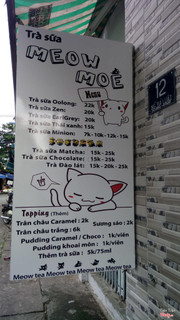 Trà sữa
MEOW
MOÉ
Menu
Trà sữa Oolong: 22k
Trà sữa Zen: 20k
Trà sữa EarlGrey: 20k
Trà sữa Thái xanh: 15k
Trà sữa Minion: 7k-10k-12k-15k
Trà sữa Matcha: 15k - 25k
Trà sữa Chocolate: 15k - 25k
Trà Đào lát: 15k - 20k - 25k
Topping: (Thêm)
Trân châu Caramel: 2k
Sương sáo: 2k
Trân châu trắng: 6k
Pudding Caramel / Choco: 1k/viên
Pudding khoai môn: 1k/viên
Thêm trà sữa: 5k/75ml
Meow tea Meow tea Meow tea Meow tea
12